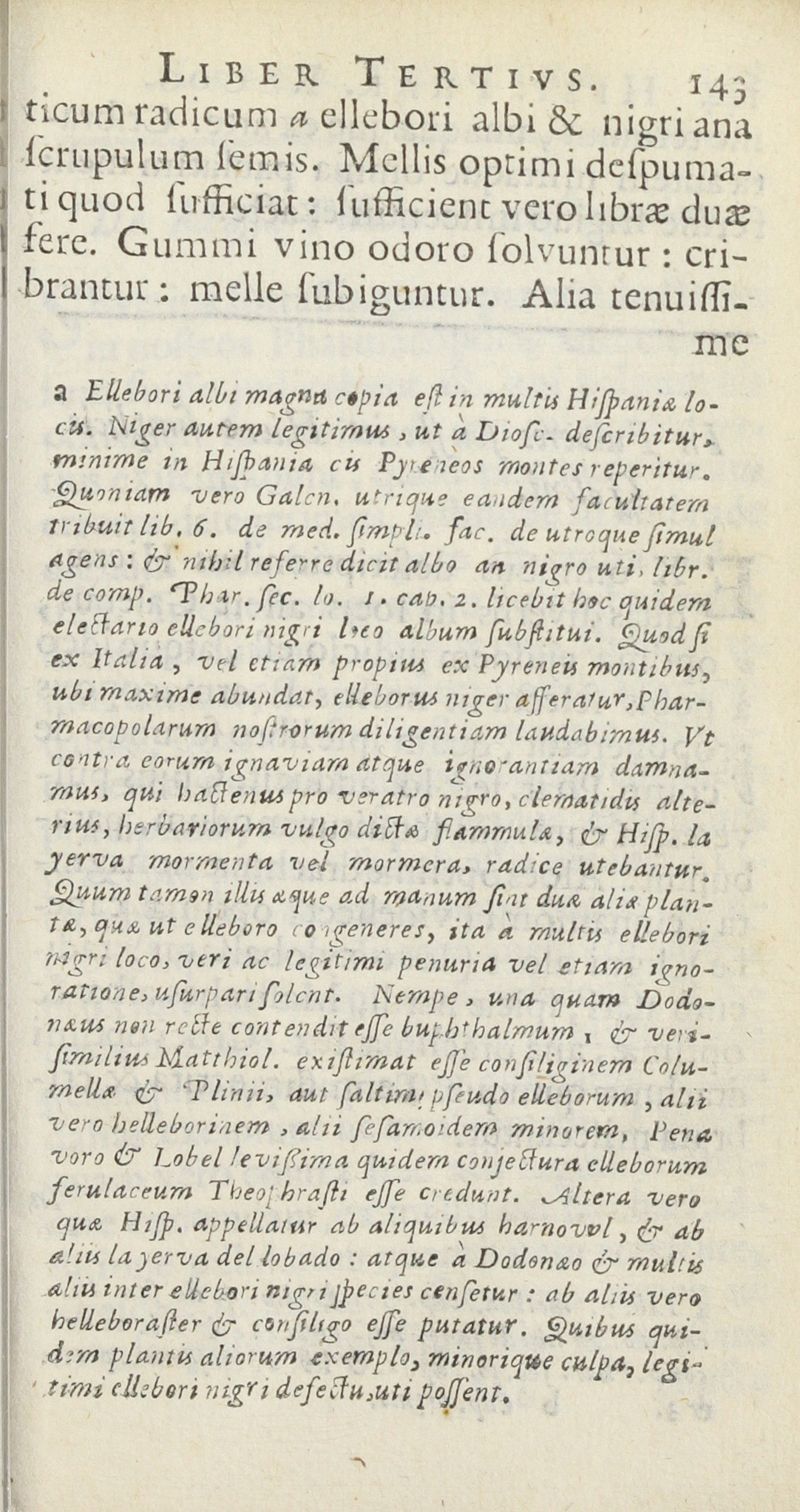 LIBER TERTIVS. 143
ticum radicum a ellebori albi & nigri ana
ſcrupulum ſemis. Mellis optimi deſpuma-
ti quod ſufficiat: ſufficient vero libræ duæ
fere. Gummi vino odoro ſolvuntur: cri-
brantur: melle ſubiguntur. Alia tenuiſſi-
me
a Ellebori albi magna copia eſt in multis Hiſpaniæ lo-
cis. Niger autem legitimus, ut à Dioſc. deſcribitur,
minime in Hiſpania cis Pyreneos montes reperitur.
Quoniam vero Galen. utrique eandem facultatem
tribuit lib. 6. de med. ſimpli. fac. de utroque ſimul
agens: & nihil referre dicit albo an nigro uti, libr.
de comp. Phar. ſec. lo. 1. cap. 2. licebit hoc quidem
electario ellebori nigri loco album ſubſtitui. Quod ſi
ex Italia, vel etiam propius ex Pyreneis montibus,
ubi maxime abundat, elleborus niger afferatur, Phar-
macopolarum noſtrorum diligentiam laudabimus. Vt
contra eorum ignaviam atque ignorantiam damna-
mus, qui hactenus pro veratro nigro, clematidis alte-
rius, herbariorum vulgo dictæ flammulæ, & Hiſp. la
yerva mormenta vel mormera, radice utebantur.
Quum tamen illis æque ad manum ſint duæ aliæ plan-
tæ, quæ ut elleboro congeneres, ita à multis ellebori
nigri loco, veri ac legitimi penuria vel etiam igno-
ratione, uſurpari ſolent. Nempe, una quam Dodo-
næus non recte contendit eſſe buphthalmum, & veri-
ſimilius Matthiol. exiſtimat eſſe conſiliginem Colu-
mellæ & Plinii, aut ſaltim pſeudo elleborum, alii
vero helleborinem, alii ſeſamoidem minorem, Pena
voro & Lobel leviſſima quidem conjectura elleborum
ferulaceum Theophraſti eſſe credunt. Altera vero
quæ Hiſp. appellatur ab aliquibus harnovvl, & ab
aliis la yerva del lobado: atque à Dodonæo & multis
aliis inter ellebori nigri ſpecies cenſetur: ab aliis vero
helleboraſter & conſiligo eſſe putatur. Quibus qui-
dem plantis aliorum exemplo, minorique culpa, legi-
timi ellebori nigri defectu, uti poſſent.